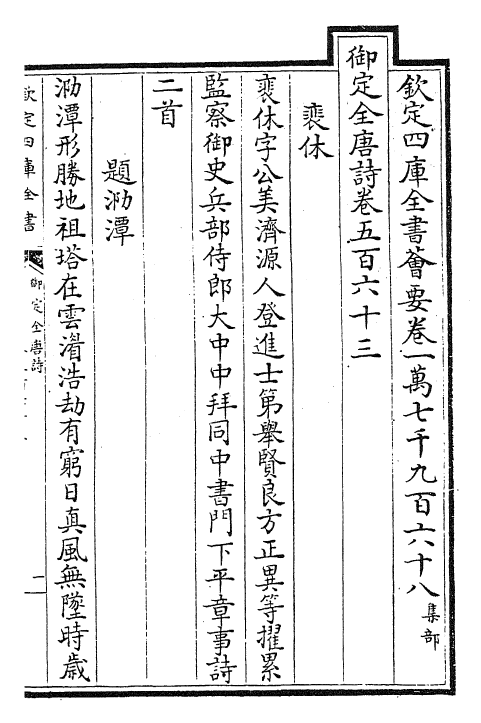 欽定四庫全書薈要卷一萬七千九百六十八 集部
御定全唐詩卷五百六十三
裴休
裴休字公美濟源人登進士第舉賢良方正異等擢累
監察御史兵部侍郎大中中拜同中書門下平章事詩
二首
題泐潭
泐潭形勝地祖塔在雲湄浩劫有窮日真風無墜時歲
欽定四庫全書
御定全唐詩